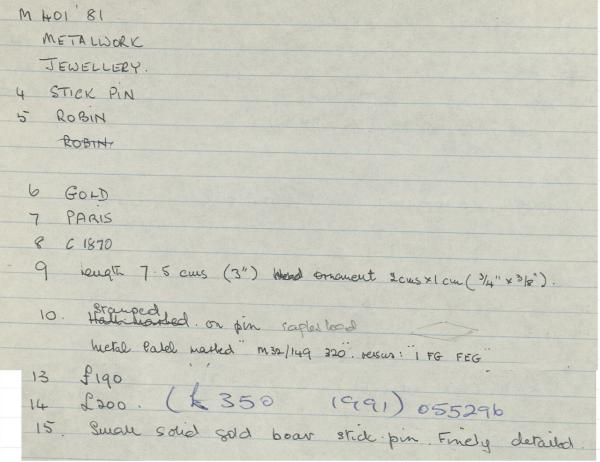 M 401 '81
METALWORK
JEWELLERY.
4 STICK PIN
5 ROBIN
ROBIN
6 GOLD
7 PARIS
8 C 1870
9 length 7.5 cms (3") head ornament 2cms x 1 cm (3/4" x 3/8").
10. Stamped
Hallmarked. on pin
Metal label marked "M32/149 320" versus: "1 FG FEG"
13 £190
14 £200. (£350 1991) 055296
15. Small solid gold boar stick pin. Finely detailed.